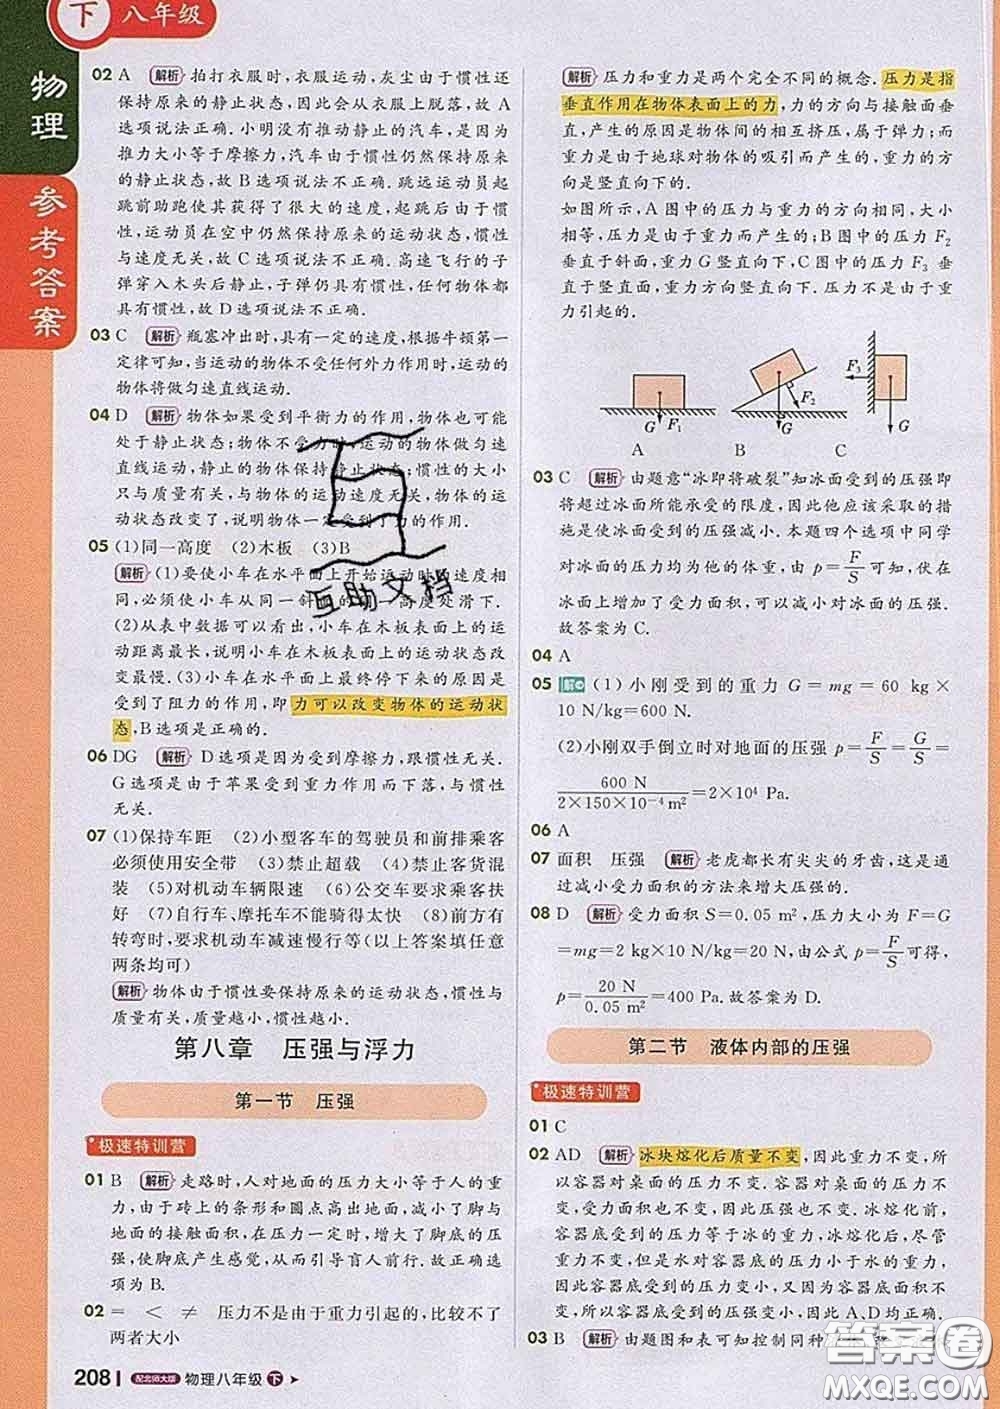 下 八年级
物理
参考答案
02 A 解析 拍打衣服时,衣服运动,灰尘由于惯性还
保持原来的静止状态,因此会从衣服上脱落,故 A
选项说法正确.小明没有推动静止的汽车,是因为
推力大小等于摩擦力,汽车由于惯性仍然保持原来
的静止状态,故 B 选项说法不正确.跳远运动员起
跳前助跑使其获得了很大的速度,起跳后由于惯
性,运动员在空中仍然保持原来的运动状态,惯性
与速度无关,故 C 选项说法不正确.高速飞行的子
弹穿入木头后静止,子弹仍具有惯性,任何物体都
具有惯性,故 D 选项说法不正确.
03 C 解析 瓶塞冲出时,具有一定的速度,根据牛顿第一
定律可知,当运动的物体不受任何外力作用时,运动的
物体将做匀速直线运动.
04 D 解析 物体如果受到平衡力的作用,物体也可能
处于静止状态;物体不受力时,运动的物体做匀速
直线运动,静止的物体保持静止状态;惯性的大小
只与质量有关,与物体的运动速度无关,物体的运动
状态改变了,说明物体一定受到了力的作用.
05 (1)同一高度 (2)木板 (3)B
解析 (1)要使小车在水平面上开始运动时的速度相
同,必须使小车从同一斜面的同一高度处滑下.
(2)从表中数据可以看出,小车在木板表面上的运
动距离最长,说明小车在木板表面上的运动状态改
变最慢.(3)小车在水平面上最终停下来的原因是
受到了阻力的作用,即力可以改变物体的运动状
态,B 选项是正确的.
06 DG 解析 D 选项是因为受到摩擦力,跟惯性无关.
G 选项是由于苹果受到重力作用而下落,与惯性
无关.
07 (1)保持车距 (2)小型客车的驾驶员和前排乘客
必须使用安全带 (3)禁止超载 (4)禁止客货混
装 (5)对机动车辆限速 (6)公交车要求乘客扶
好 (7)自行车、摩托车不能骑得太快 (8)前方有
转弯时,要求机动车减速慢行等(以上答案填任意
两条均可)
解析 物体由于惯性要保持原来的运动状态,惯性与
质量有关,质量越小,惯性越小.
第八章 压强与浮力
第一节 压强
极速特训营
01 B 解析 走路时,人对地面的压力大小等于人的重
力,由于砖上的条形和圆点高出地面,减小了脚与
地面的接触面积,在压力一定时,增大了脚底的压
强,使脚底产生感觉,从而引导盲人前行.故正确选
项为 B.
02 = < ≠ 压力不是由于重力引起的,比较不了
两者大小
208 配北师大版 物理八年级 下
解析 压力和重力是两个完全不同的概念.压力是指
垂直作用在物体表面上的力,力的方向与接触面垂
直,产生的原因是物体间的相互挤压,属于弹力;而
重力是由于地球对物体的吸引而产生的,重力的方
向是竖直向下的.
如图所示,A 图中的压力与重力的方向相同,大小
相等,力是由于重力而产生的;B 图中的压力 F₂
垂直于斜面,重力 G 竖直向下,C 图中的压力 F₃ 垂
直于竖直面,重力方向竖直向下.压力不是由重力
引起的.
G F₁ F₂ G F₃ G
A B C
03 C 解析 由题意“冰即将破裂”知冰面受到的压强即
将超过冰面所能承受的限度,因此他应该采取的措
施是使冰面受到的压强减小.本题四个选项中同学
对冰面的压力均为他的体重,由 p=F/S 可知,伏在
冰面上增加了受力面积,可以减小对冰面的压强.
故答案为 C.
04 A
05 解 (1)小刚受到的重力 G=mg=60 kg×
10 N/kg=600 N.
(2)小刚双手倒立时对地面的压强 p=F/S=G/S=
600 N/(2×150×10⁻⁴ m²)=2×10⁴ Pa.
06 A
07 面积 压强 解析 老虎都长有尖尖的牙齿,这是通
过减小受力面积的方法来增大压强的.
08 D 解析 受力面积 S=0.05 m²,压力大小为 F=G
=mg=2 kg×10 N/kg=20 N,由公式 p=F/S 可得,
p=20 N/0.05 m²=400 Pa.故答案为 D.
第二节 液体内部的压强
极速特训营
01 C
02 AD 解析 冰块熔化后质量不变,因此重力不变,所
以容器对桌面的压力不变.容器对桌面的压力不
变,受力面积也不变,因此压强也不变.冰熔化前,
容器底受到的压力等于冰的重力,冰熔化后,尽管
重力不变,但是水对容器底的压力小于水的重力,
因此容器底受到的压力变小,又因为容器底面积不
变,所以容器底受到的压强变小.因此 A、D 均正确.
03 B 解析 由题图和表可知控制同种
互助文档
答案圈
MXQE.COM